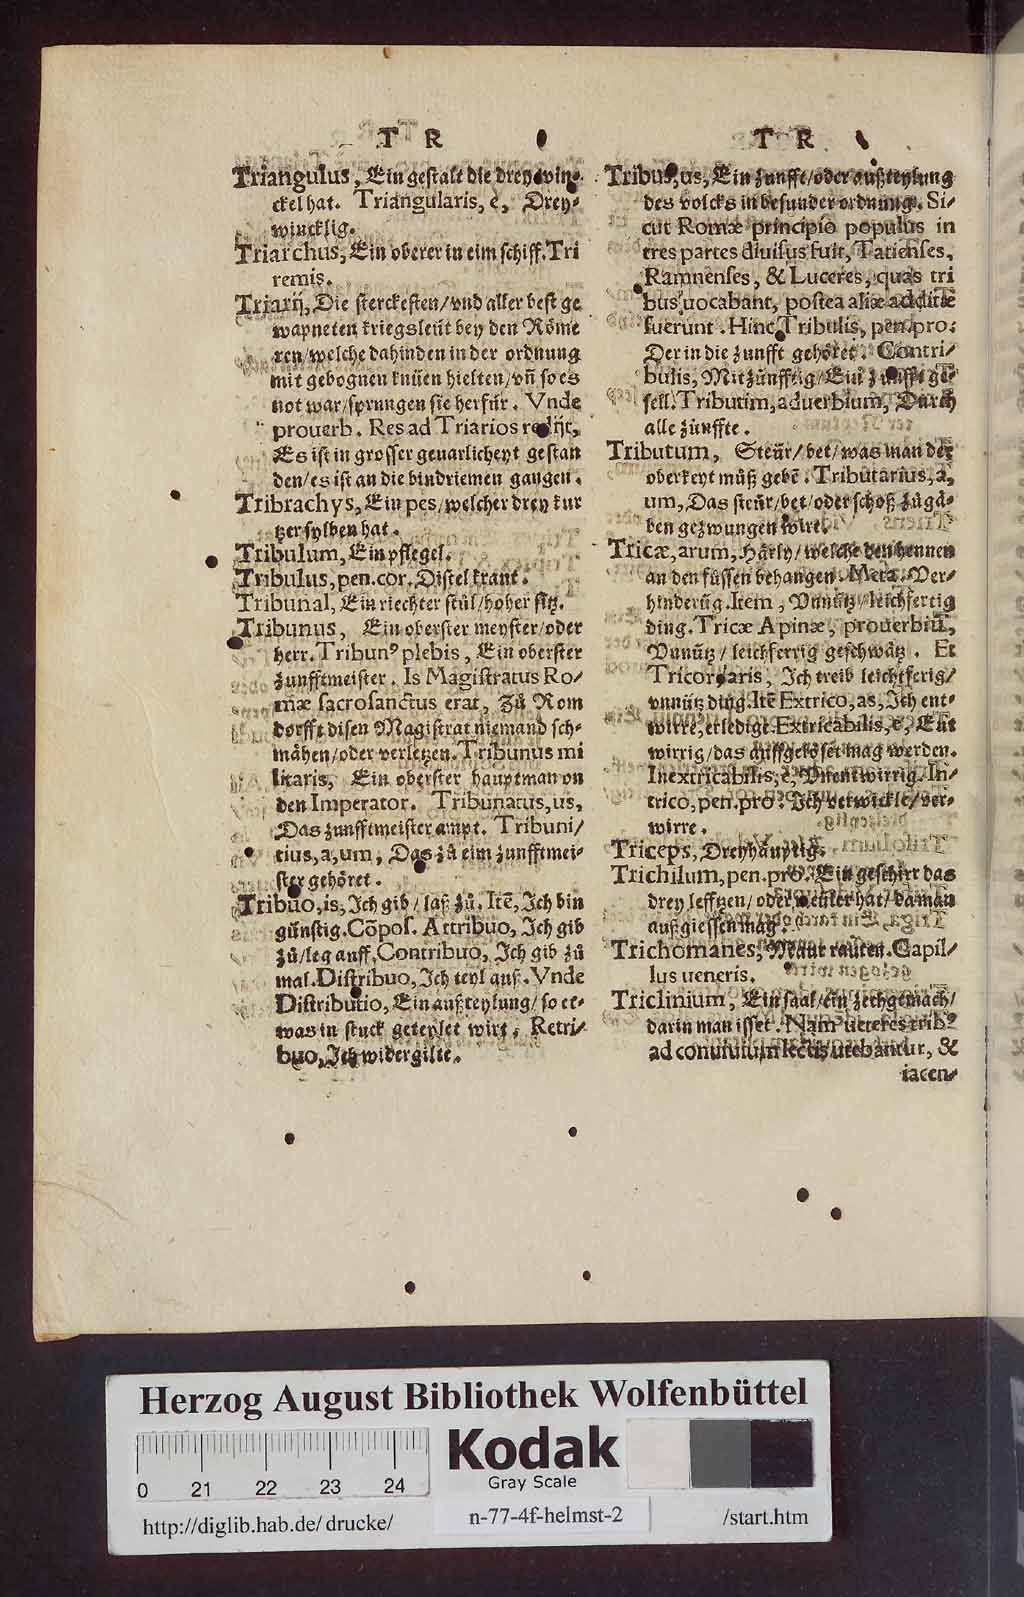 T R
Triangulus, Ein gestalt die drey win-
ckel hat. Triangularis, e, Drey-
wincklig.
Triarchus, Ein oberer in eim schiff. Tri
remis.
Triarij, Die sterckesten/vnd aller best ge
wapneten kriegsleüt bey den Röme
ren/welche dahinden in der ordnung
mit gebognen knüen hielten/vñ so es
not war/sprungen sie herfür. Vnde
prouerb. Res ad Triarios redijt,
Es ist in grosser geuarlicheyt gestan
den/es ist an die bindriemen gangen.
Tribrachys, Ein pes/welcher drey kur
tzer sylben hat.
Tribulum, Ein pflegel.
Tribulus, pen.cor. Distel kraut.
Tribunal, Ein riechter stůl/hoher sitz.
Tribunus, Ein oberster meyster/oder
herr. Tribunꝰ plebis, Ein oberster
zunfftmeister. Is Magistratus Ro/
mæ sacrosanctus erat, Zů Rom
dorfft disen Magistrat niemand sch-
mähen/oder verletzen. Tribunus mi
litaris, Ein oberster hauptman on
den Imperator. Tribunatus, us,
Das zunfftmeister ampt. Tribuni/
tius, a, um, Das zů eim zunfftmei-
ster gehöret.
Tribuo, is, Ich gib/laß zů. Itē, Ich bin
günstig. Cōpos. Attribuo, Ich gib
zů/leg auff, Contribuo, Ich gib zů
mal. Distribuo, Ich teyl auß. Vnde
Distributio, Ein außteylung/so et-
was in stuck geteylet wirt. Retri/
buo, Ich widergilte.
T R
Tribus, us, Ein zunfft/oder außteylung
des volcks in besunder ordnung. Si/
cut Romæ principio populus in
tres partes diuisus fuit, Tatienses,
Ramnenses, & Luceres, quas tri
bus uocabant, postea aliæ additæ
fuerunt. Hinc Tribulis, pen.pro:
Der in die zunfft gehöret. Contri/
bulis, Mitzünfftig/Ein zunfft ge-
sell. Tributim, aduerbium, Durch
alle zünffte.
Tributum, Steür/bet/was man der
oberkeyt můß gebē. Tributarius, a,
um, Das steür/bet/oder schoß zůgä-
ben gezwungen wirt.
Tricæ, arum, Härly/welche den hennen
an den füssen behangen. Meta. Ver-
hinderũg. Item, Vnnütz/leichfertig
ding. Tricæ Apinæ, prouerbiũ,
Vnnütz/leichferrig geschwätz. Et
Tricor, aris, Ich treib leichtferig/
vnnütz ding. Itē Extrico, as, Ich ent-
wirre, erledige. Extricabilis, e, Ent
wirrig/das auffgelöset mag werden.
Inextricabilis, e, Vnentwirrig. In/
trico, pen.pro: Ich verwickle/ver-
wirre.
Triceps, Dreyhäuptig.
Trichilum, pen.pro. Ein geschirr das
drey lefftzen/oder meuler hat/da man
außgiessen mag.
Trichomanes, Maur rauten. Capil/
lus ueneris.
Triclinium, Ein saal/ein zechgemach/
darin man isset. Nam ueteres tribꝰ
ad conuiuium lectis utebantur, &
iacen/
Herzog August Bibliothek Wolfenbüttel
Kodak
Gray Scale
0 21 22 23 24
http://diglib.hab.de/drucke/ n-77-4f-helmst-2 /start.htm